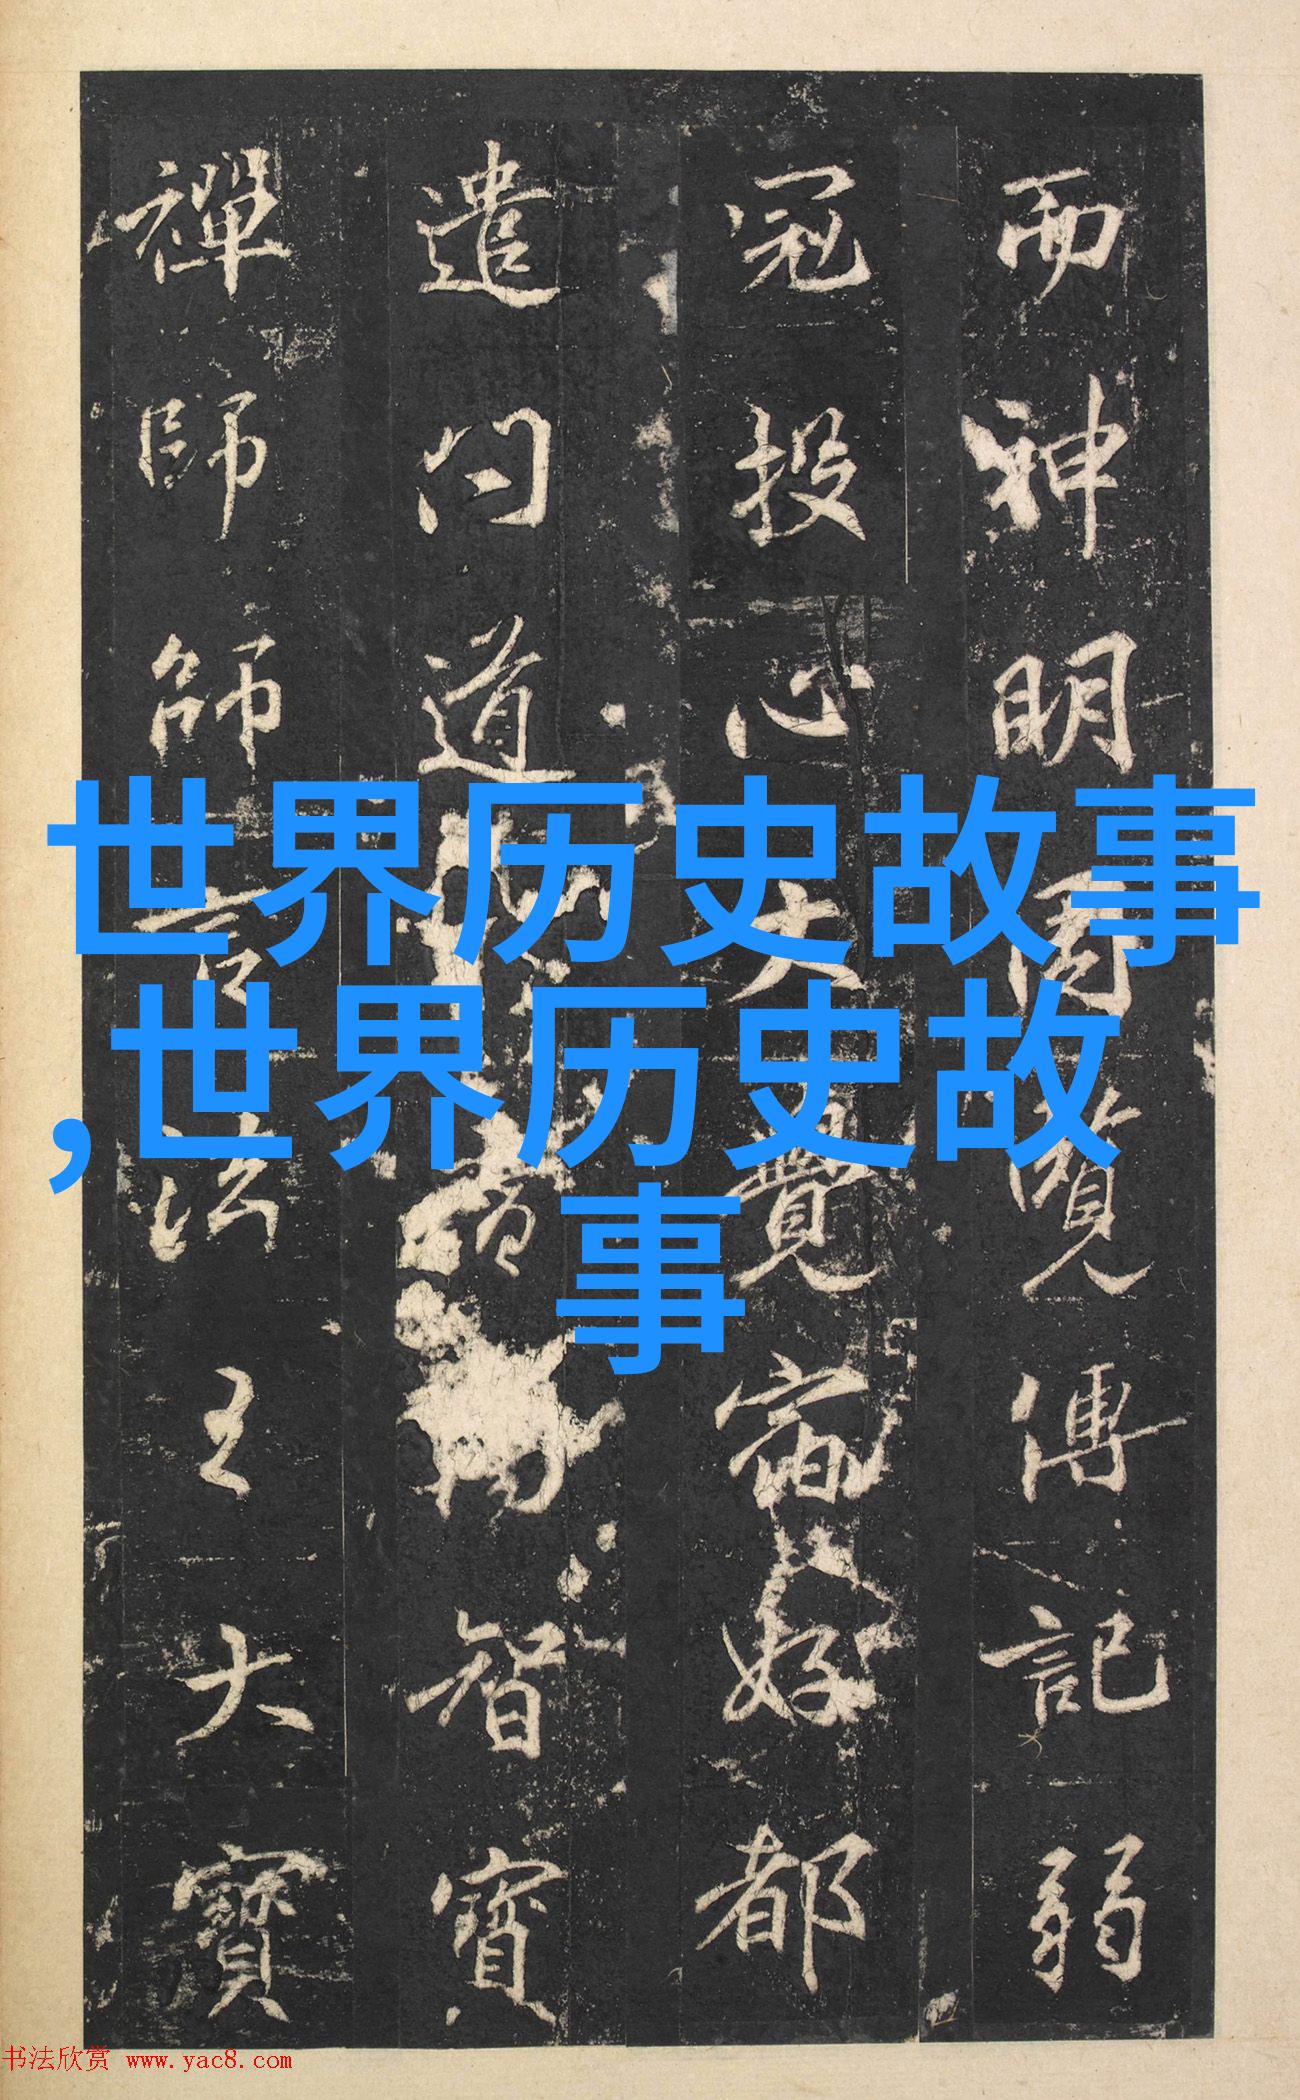 世界历史故事
,世界历史故
事
而神明周覽傳記弱
冠投心大覺宿好都
遣問道智寶
禪師師言法王大寶
书法欣赏 www.yac8.com